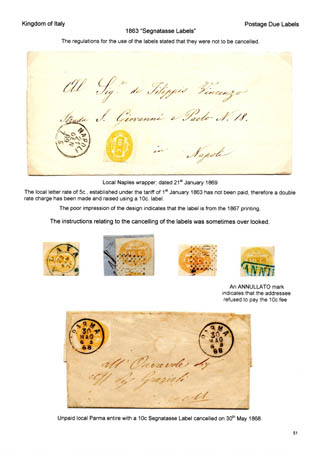 Kingdom of Italy
Postage Due Labels
1863 "Segnatasse Labels"
The regulations for the use of the labels stated that they were not to be cancelled.
All Sigr. de Filippis Vincenzo
Strada S. Giovanni e Paolo N. 18.
in
Napoli
NAPOLI
Local Naples wrapper; dated 21st January 1869
The local letter rate of 5c , established under the tariff of 1st January 1863 has not been paid, therefore a double
rate charge has been made and raised using a 10c. label.
The poor impression of the design indicates that the label is from the 1867 printing.
The instructions relating to the cancelling of the labels was sometimes over looked.
An ANNULLATO mark
indicates that the addressee
refused to pay the 10c fee
PARMA
30
MAG
68
PARMA
30
MAG
68
Unpaid local Parma entire with a 10c Segnatasse Label cancelled on 30th May 1868.
51